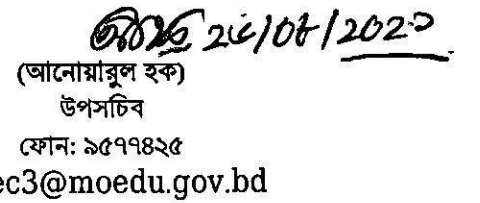 (আনোয়ারুল হক)
উপসচিব
ফোন: ৯৫৭৭৪২৫
ec3@moedu.gov.bd